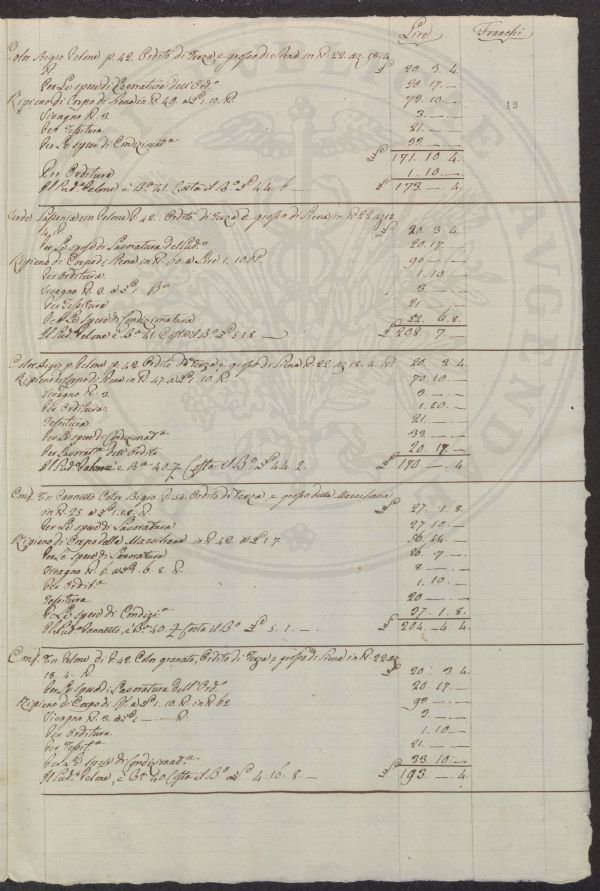 Lire Franchi
19
Color Bigio Pelone p. 42. Ordito di Terza e grosso di Siena in ℔ 22. az 18. 4
℔. 20. 3. 4.
Per Le spese di Lavoratura dell'Ord.o 20. 17. —
Ripieno di Corpo di Siena in ℔ 49. a £ 1. 10. ℔. 73. 10. —
Vivagno ℔. 3. 3. —
Per Tesitura 21. —
Per Le spese di Condizinat.a
171. 10. 4.
Per Orditura 1. 10. —
Il Sud.o Pelone è B.a 41. Costa il B.o £ 4. 4. 6 — 173. — 4.
Verde Pelone P. 42... Ordito di Terza e grosso di Siena in ℔ 22 az 18
4. ℔ 20. 3. 4.
Per Le spese di Lavoratura dell'Ord.o 20. 17.
Ripieno di Corpo di Siena in ℔. 60. a Lire 1. 10 ℔. 90 — —
Per Orditura 1. 10. —
Vivagno ℔. 3. a £ 1. 3. —
Per Tesitura 21. —
Per Le Spese di Condizinatura 52. 6. 8.
Il Sud.o Pelone è B.a 41. Costa il B.o £ 5. 1. 8 — 208. 7. —
Color Bigio p. Pelone p. 42. Ordito di Terza e grosso di Siena ℔. 22. az 18. 4. ℔. 20. 3. 4.
Ripieno di Corpo di Siena in ℔. 47. a £ 1. 10. ℔. 70. 10. —
Vivagno ℔. 3. 3. —
Per Orditura 1. 10. —
Tesitura 21. —
Per Le spese di Condizinat.a 33. —
Per Lavorat.a dell'Ordito 20. 17. —
Il Sud.o Pelone è B.a 40 Costa il B.o £ 4. 4. 2. 170. — 4
Conf. Un Pannetto Color Bigio P. 54. Ordito di Terza, e grosso della Marsiliana
in ℔. 25. a £ 1. 1. 8. ℔ 27. 1. 8.
Per Le spese di Lavoratura 27. 10. —
Ripieno di Corpo della Marsiliana in ℔ 42. a £ 1. 7. 56. 14. —
Per Le spese di Lavoratura 26. 7. —
Vivagno ℔. 6. a £ 1. 6. 8. ℔. 8. — —
Per Ordit.a 1. 10. —
Tesitura 20 — —
P. Le spese di Condizi.a 37. 1. 8.
Il Sud.o Pannetto, è B.a 40. Costa il B.o £ 5. 1. — 204. 4. 4.
Conf. Un Pelone di P. 42 Color granato, Ordito di Terza e grosso di Siena in ℔ 22 az
18. 4. ℔. 20. 3. 4.
Per Le spese di Lavoratura dell'Ord.o 20. 17. —
Ripieno di Corpo di S.a a £ 1. 10. ℔. in ℔ 62 93 — —
Vivagno ℔. 3. a £ 1. — — ℔. 3. — —
Per Orditura 1. 10 —
Per Tesit.a 21. — —
Per Le spese di Condizinat.a 33. 10. —
Il Sud.o Pelone, è B.a 40 Costa il B.o a £ 4. 16. 8. — 193. — 4.